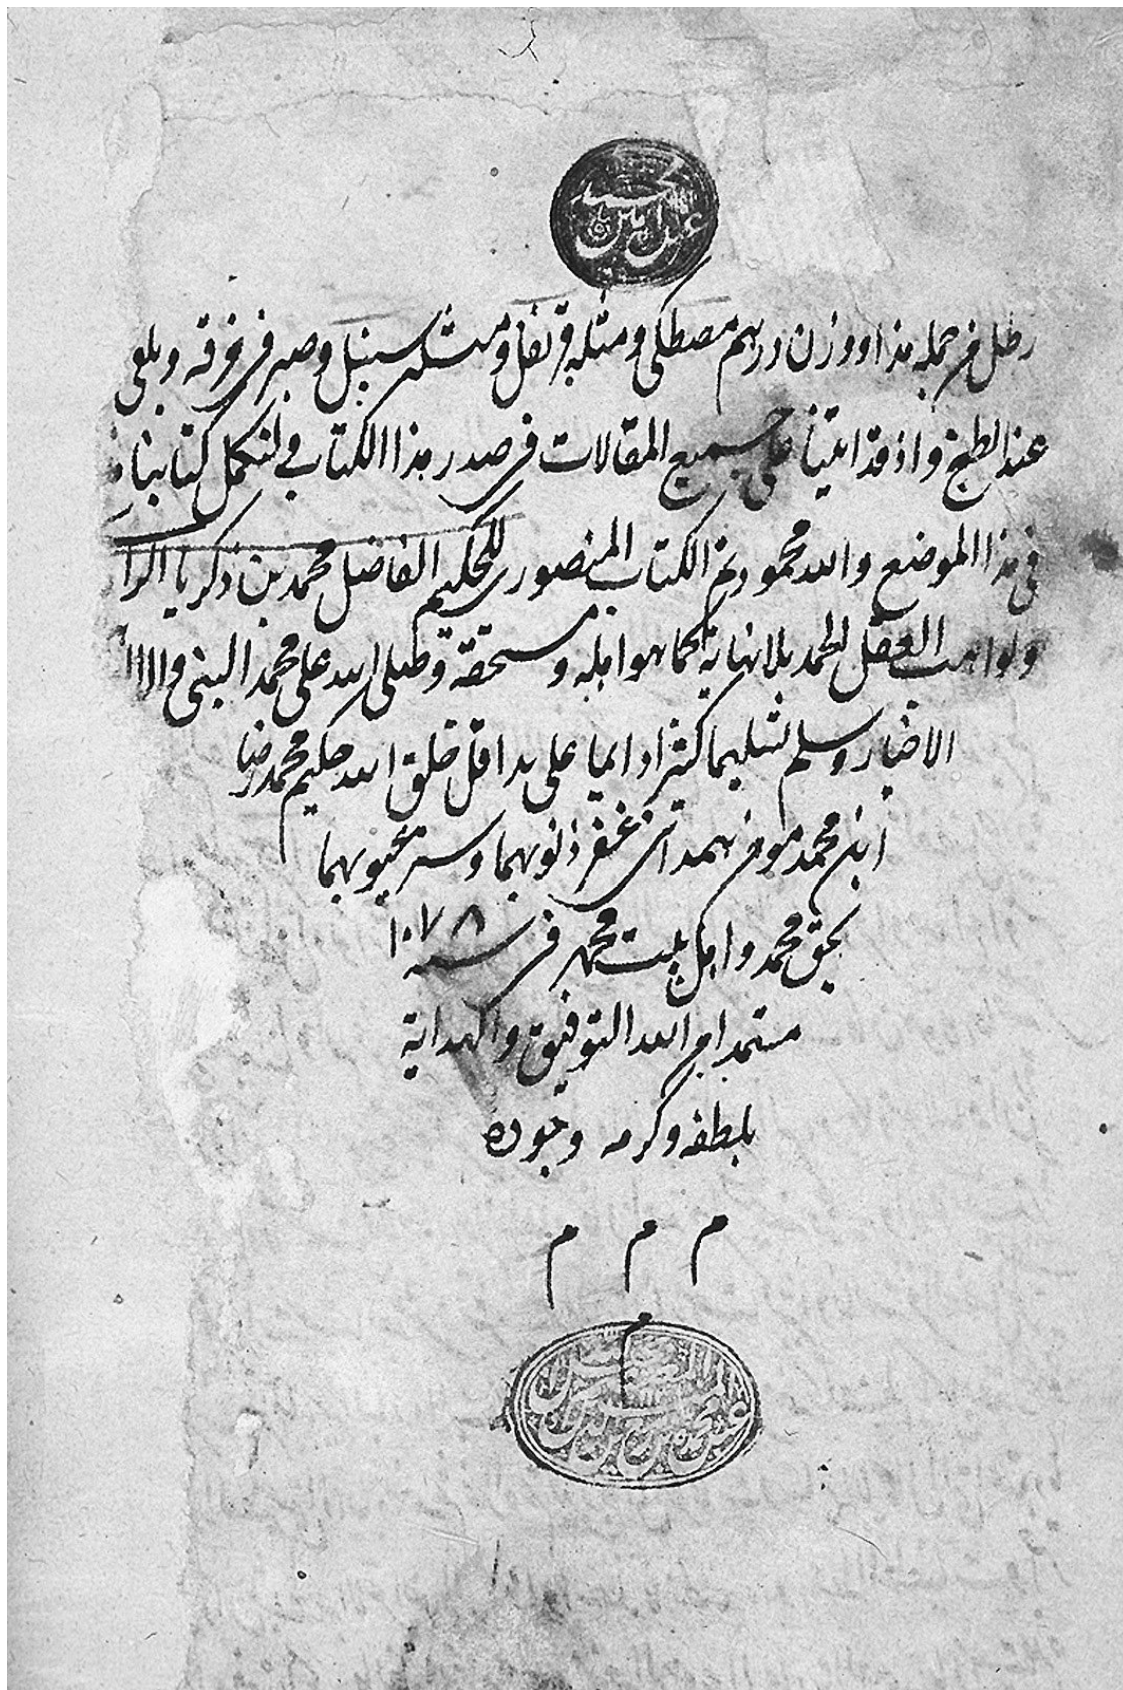 رطل من جمله هذا ووزن درهم مصطکی ومثله قرنفل ومثله سنبل وصیر فی خرقه ویلقی
عند الطبخ واذ قد اتینا علی جمیع المقالات فی صدر هذا الکتاب فلنکمل کتابنا
فی هذا الموضع والله محمود تم الکتاب المنصوری للحکیم الفاضل محمد بن ذکریا الرا
ولواهب العقل الحمد بلا نهایة کما هو اهله ومستحقه وصلی الله علی محمد النبی والال
الاخیار وسلم تسلیما کثیرا دایما علی ید اقل خلق الله حکیم محمد رضا
ابن محمد مومن همدانی غفر ذنوبهما وستر عیوبهما
بحق محمد واهل بیت محمد فی سنه ۱۰۷۸
مستمدا من الله التوفیق والهدایة
بلطفه وکرمه وجوده
م م م
م